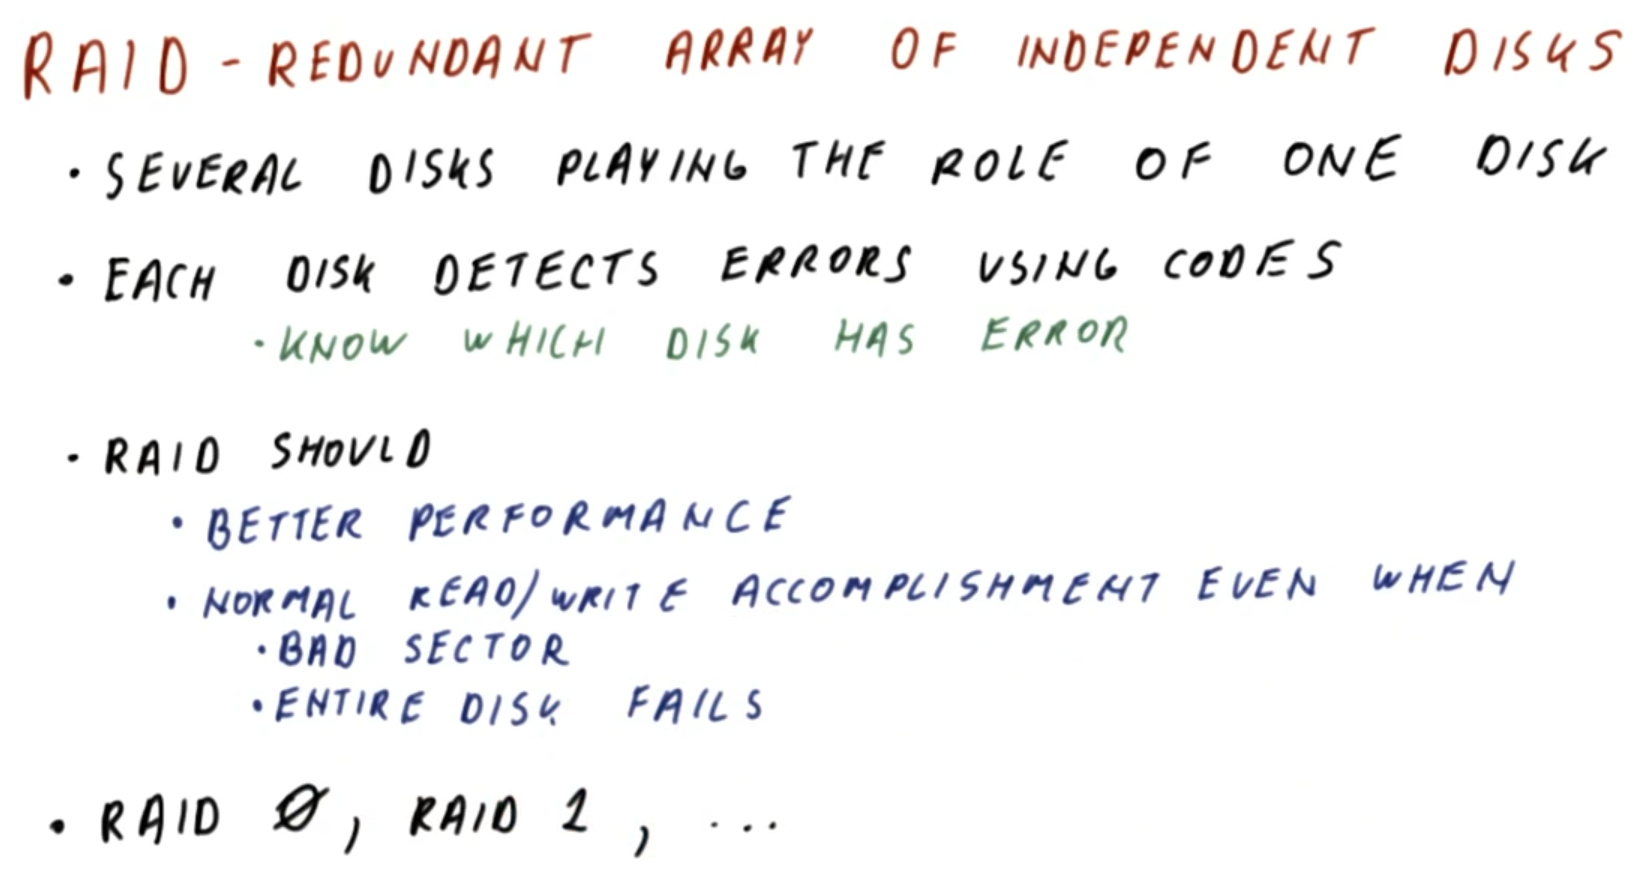 RAID - REDUNDANT ARRAY OF INDEPENDENT DISKS
· SEVERAL DISKS PLAYING THE ROLE OF ONE DISK
· EACH DISK DETECTS ERRORS USING CODES
· KNOW WHICH DISK HAS ERROR
· RAID SHOULD
· BETTER PERFORMANCE
· NORMAL READ/WRITE ACCOMPLISHMENT EVEN WHEN
· BAD SECTOR
· ENTIRE DISK FAILS
· RAID 0, RAID 1, ...